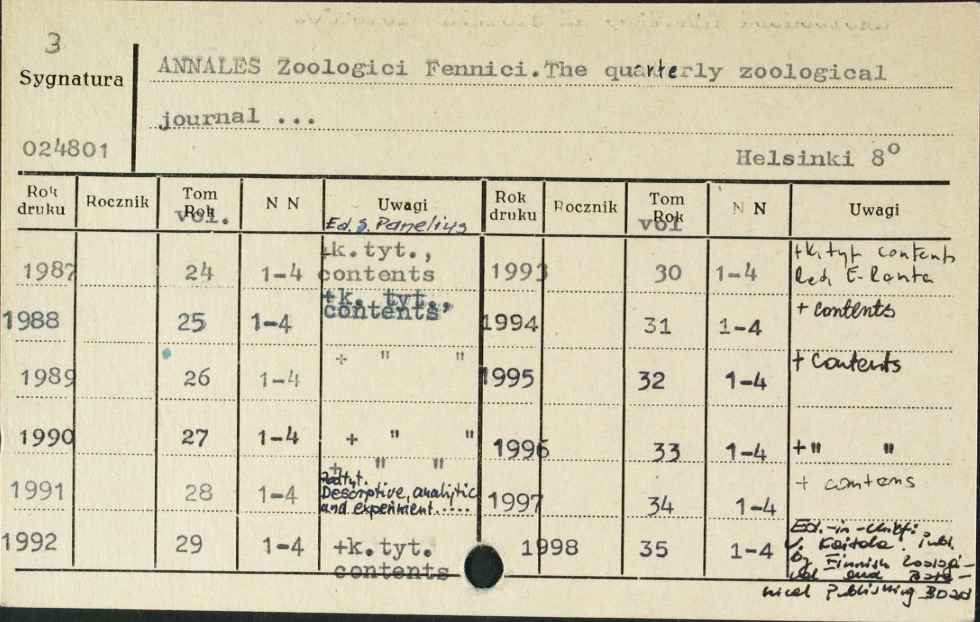 3
Sygnatura
024801
ANNALES Zoologici Fennici.The quarterly zoological
journal ...
Helsinki 8°
Rok druku Rocznik Tom Rok vol. N N Uwagi Rok druku Rocznik Tom Rok vol N N Uwagi
Ed. S. Panelius
1987 24 1-4 +k.tyt., contents
1988 25 1-4 +k. tyt., contents
1989 26 1-4 + " "
1990 27 1-4 + " "
1991 28 1-4 + " "
Podtyt.
Descriptive, analytic
and experiment.....
1992 29 1-4 +k.tyt. contents
1993 30 1-4 +k.tyt contents
Red. E. Ranta
1994 31 1-4 + contents
1995 32 1-4 + contents
1996 33 1-4 +" "
1997 34 1-4 + contens
1998 35 1-4 Ed.-in-chief:
V. Kaitala. publ.
by Finnish Zoologi-
cal and Bota-
nical Publishing Board